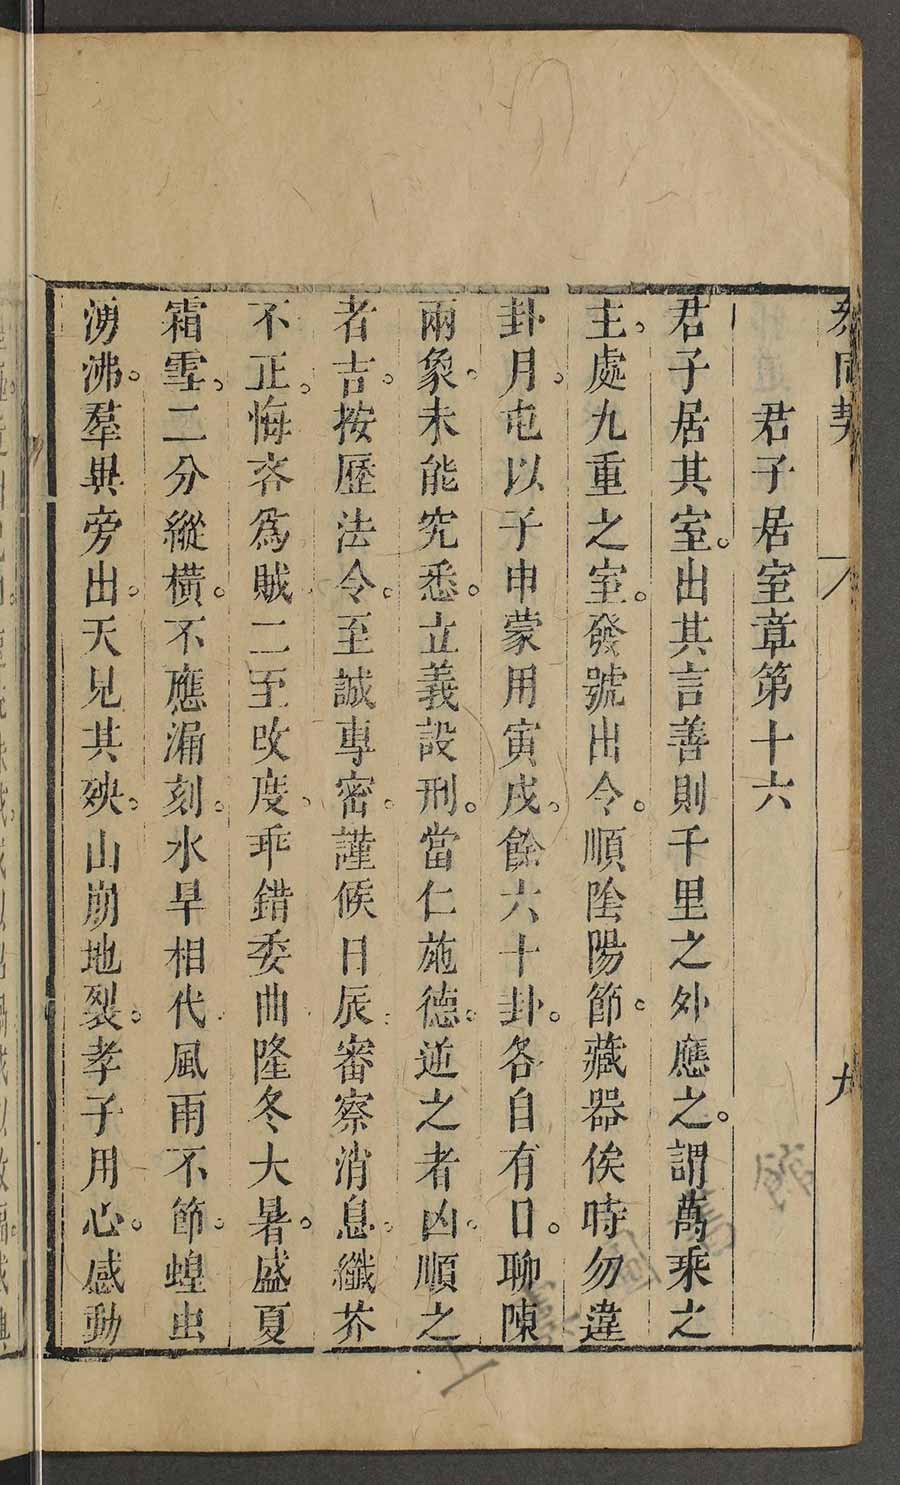 參同契 八 九
君子居室章第十六
君子居其室。出其言善則千里之外應之。謂萬乘之
主。處九重之室。發號出令。順陰陽節。藏器俟時勿違
卦月。屯以子申蒙用寅戌。餘六十卦。各自有日。聊陳
兩象。未能究悉。立義設刑。當仁施德。逆之者凶。順之
者吉。按歷法令。至誠專密。謹候日辰。審察消息。纖芥
不正。悔吝為賊。二至改度。乖錯委曲隆冬大暑。盛夏
霜雪。二分縱橫。不應漏刻。水旱相代。風雨不節。蝗虫
湧沸。羣異旁出。天見其殃。山崩地裂。孝子用心。感動